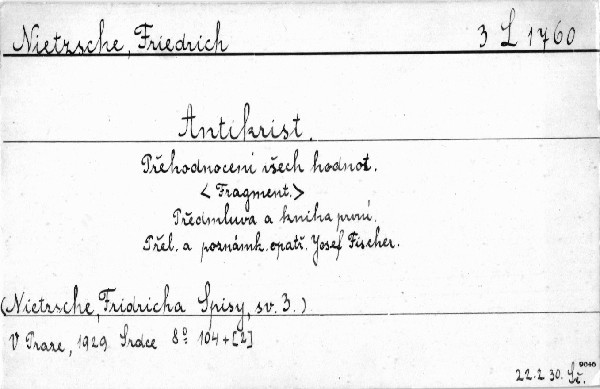 Nietzsche, Friedrich 3 L 1760
Antikrist.
Přehodnocení všech hodnot.
<Fragment.>
Předmluva a kniha první.
Přel. a poznámk. opatř. Josef Fischer.
(Nietzsche, Fridricha Spisy, sv. 3.)
V Praze, 1929 Srdce 8° 104+[2]
22.2 30.